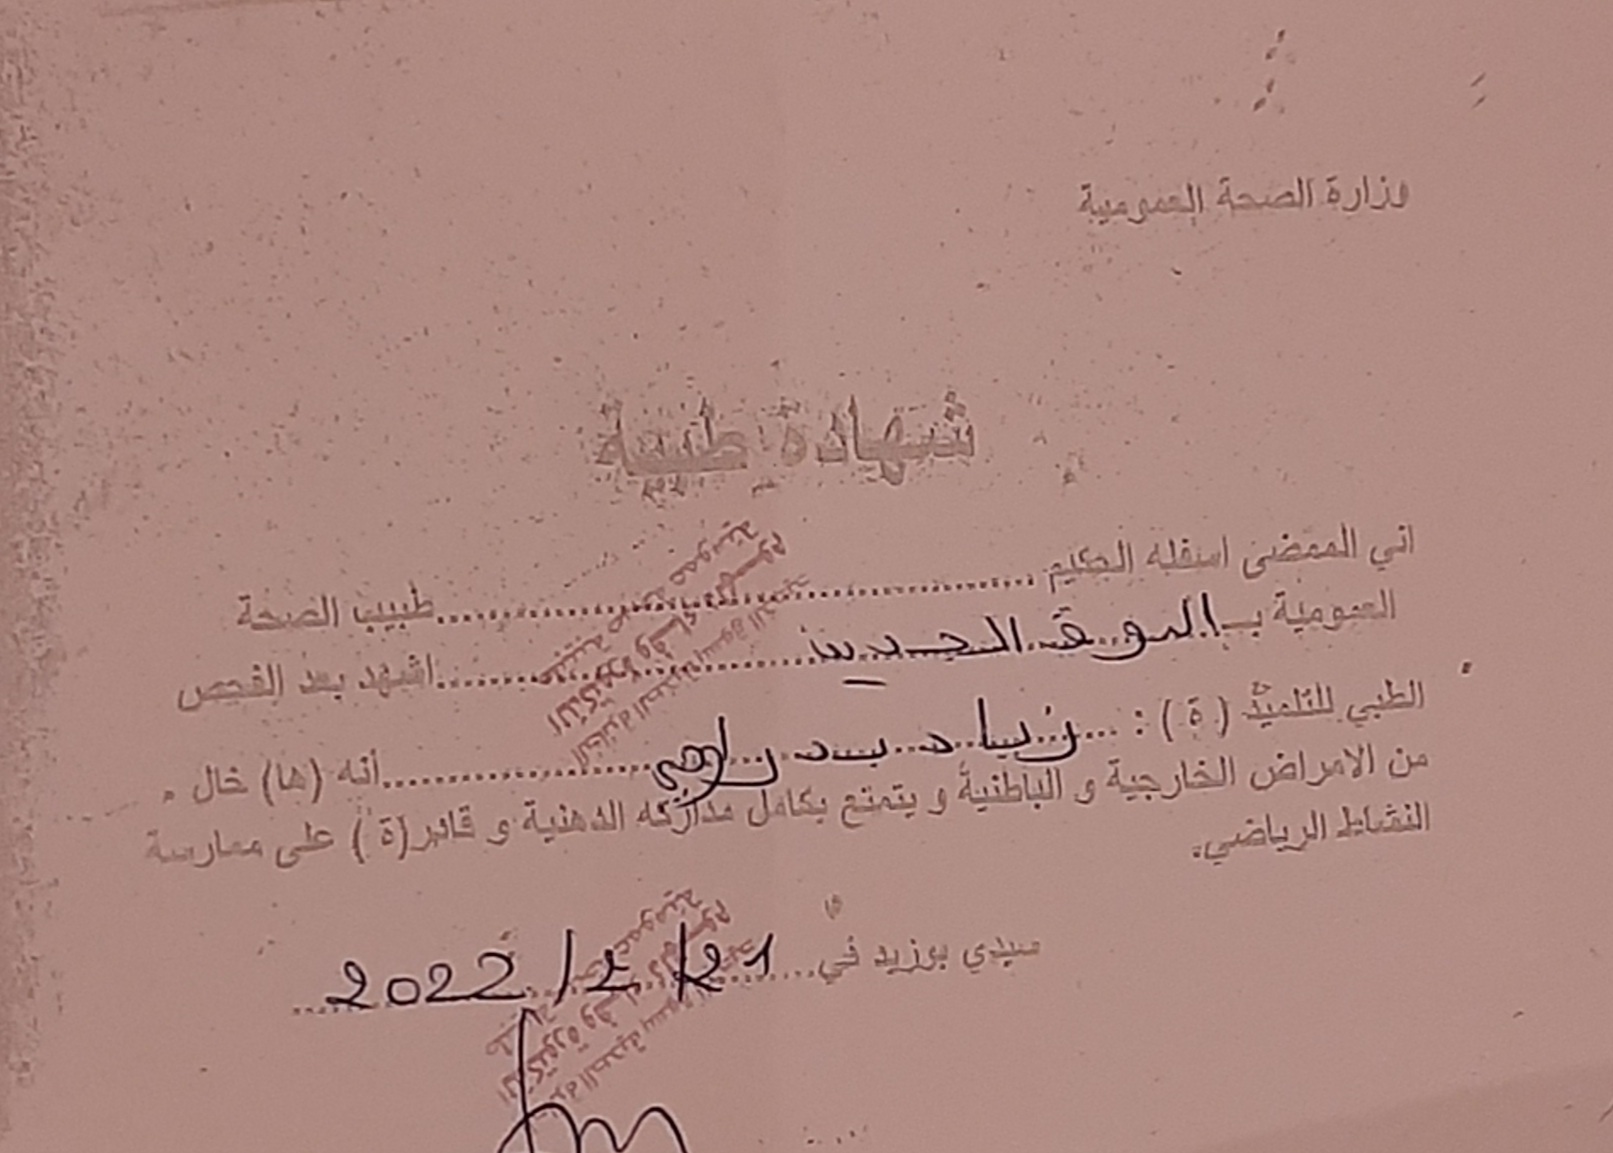 وزارة الصحة العمومية
شهادة طبية
اني الممضى اسفله الحكيم ........ طبيب الصحة
العمومية بـ السوق الجديد ........ اشهد بعد الفحص
الطبي للتلميذ ( ة ) : ... زياد ........ أنه (ها) خال
من الامراض الخارجية و الباطنية و يتمتع بكامل مداركه الذهنية و قادر(ة ) على ممارسة
النشاط الرياضي.
سيدي بوزيد في ..... 21/2/2022